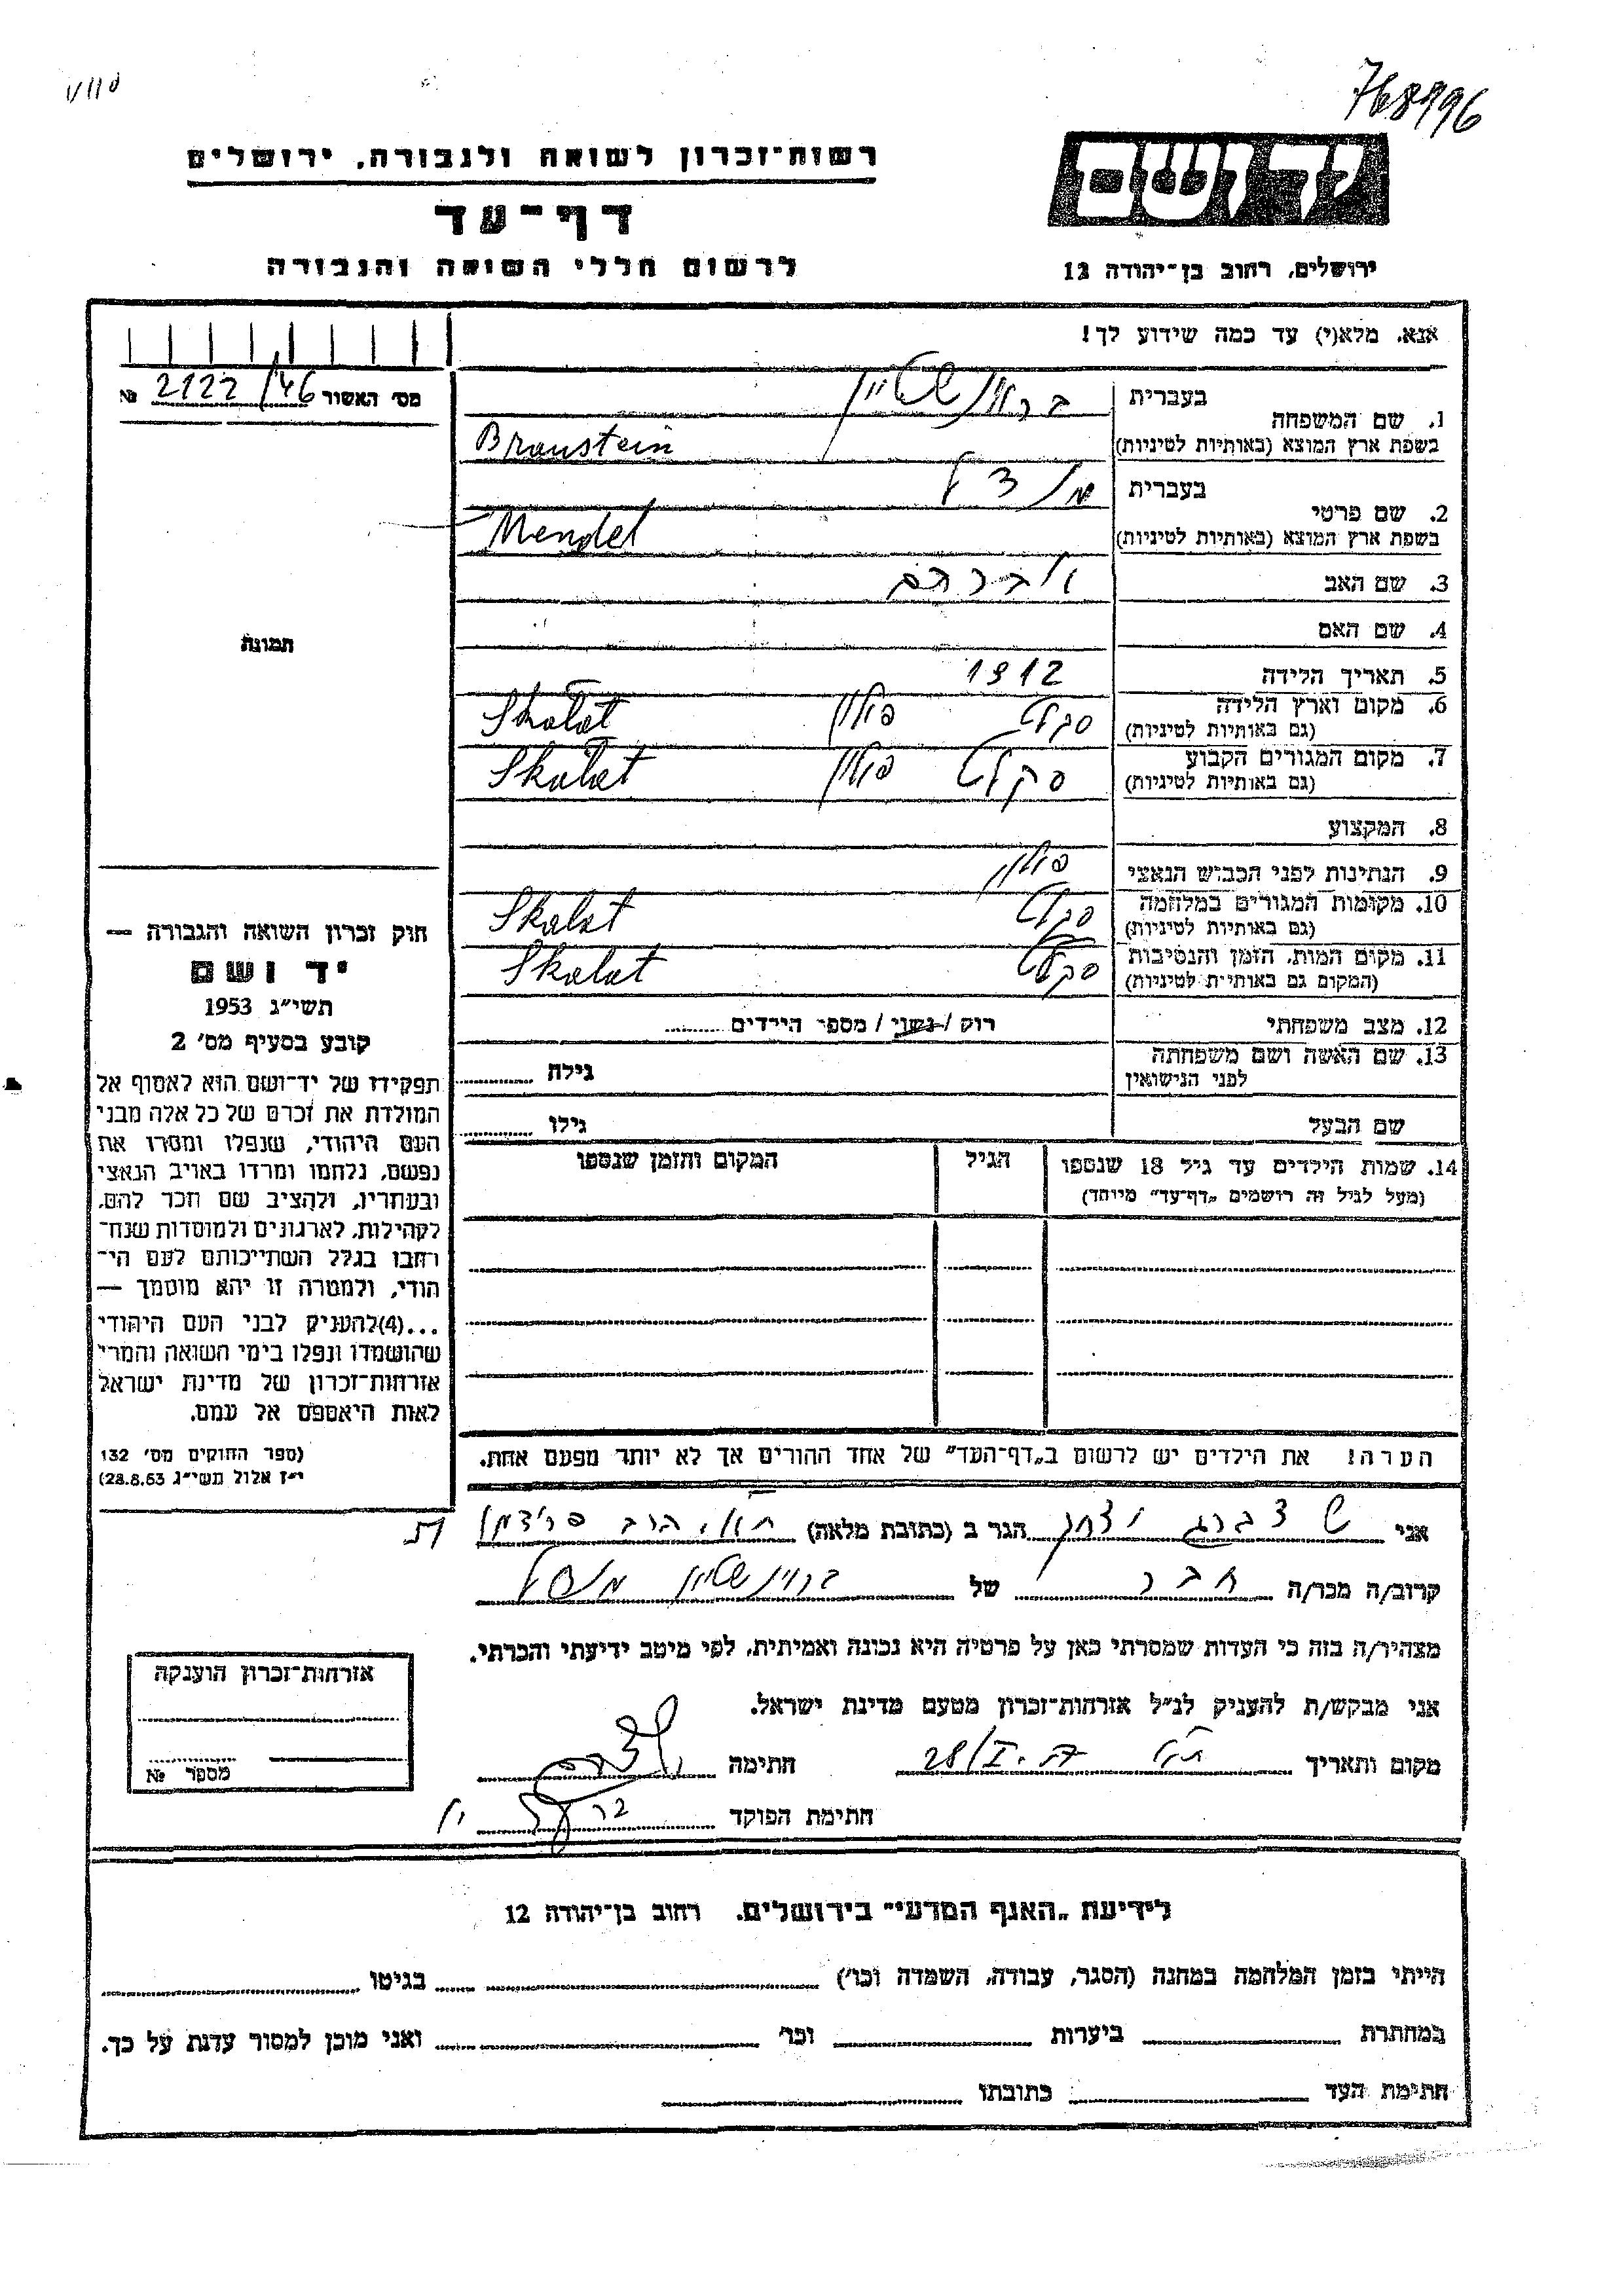 768996
רשות־זכרון לשואה ולגבורה, ירושלים
יד ושם
דף־עד
לרשום חללי השואה והגבורה
ירושלים, רחוב בן־יהודה 12
אנא, מלא(י) עד כמה שידוע לך!
מס׳ האשור 2122/46 №
1. שם המשפחה
בעברית ברוינשטיין
בשפת ארץ המוצא (באותיות לטיניות) Braustein
2. שם פרטי
בעברית מנדל
בשפת ארץ המוצא (באותיות לטיניות) Mendel
3. שם האב אברהם
4. שם האם
5. תאריך הלידה 1912
6. מקום וארץ הלידה סקלט פולין Skalat
(גם באותיות לטיניות)
7. מקום המגורים הקבוע סקלט פולין Skalat
(גם באותיות לטיניות)
8. המקצוע
9. הנתינות לפני הכבוש הנאצי פולין
10. מקומות המגורים במלחמה סקלט Skalat
(גם באותיות לטיניות)
11. מקום המות, הזמן והנסיבות סקלט Skalat
(המקום גם באותיות לטיניות)
12. מצב משפחתי רוק / נשוי / מספר הילדים
13. שם האשה ושם משפחתה
לפני הנישואין גילה
שם הבעל גילו
14. שמות הילדים עד גיל 18 שנספו הגיל המקום והזמן שנספו
(מעל לגיל זה רושמים „דף־עד” מיוחד)
הערה! את הילדים יש לרשום ב„דף־העד” של אחד ההורים אך לא יותר מפעם אחת.
תמונה
חוק זכרון השואה והגבורה —
יד ושם
תשי״ג 1953
קובע בסעיף מס׳ 2
תפקידו של יד־ושם הוא לאסוף אל
המולדת את זכרם של כל אלה מבני
העם היהודי, שנפלו ומסרו את
נפשם, נלחמו ומרדו באויב הנאצי
ובעוזריו, ולהציב שם וזכר להם,
לקהילות, לארגונים ולמוסדות שנח־
רבו בגלל השתייכותם לעם הי־
הודי, ולמטרה זו יהא מוסמך —
...(4)להעניק לבני העם היהודי
שהושמדו ונפלו בימי השואה והמרי
אזרחות־זכרון של מדינת ישראל
לאות היאספם אל עמם.
(ספר החוקים מס׳ 132
י״ז אלול תשי״ג 28.8.53)
אני יצחק הגר ב (כתובת מלאה) הרב פרידמן
קרוב/ה מכר/ה חבר של ברוינשטיין מנדל
מצהיר/ה בזה כי העדות שמסרתי כאן על פרטיה היא נכונה ואמיתית, לפי מיטב ידיעתי והכרתי.
אני מבקש/ת להעניק לנ״ל אזרחות־זכרון מטעם מדינת ישראל.
מקום ותאריך 28/I חתימה
חתימת הפוקד
אזרחות־זכרון הוענקה
מספר №
לידיעת „האגף המדעי” בירושלים, רחוב בן־יהודה 12
הייתי בזמן המלחמה במחנה (הסגר, עבודה, השמדה וכו׳) בגיטו
במחתרת ביערות וכו׳ ואני מוכן למסור עדות על כך.
חתימת העד כתובתו